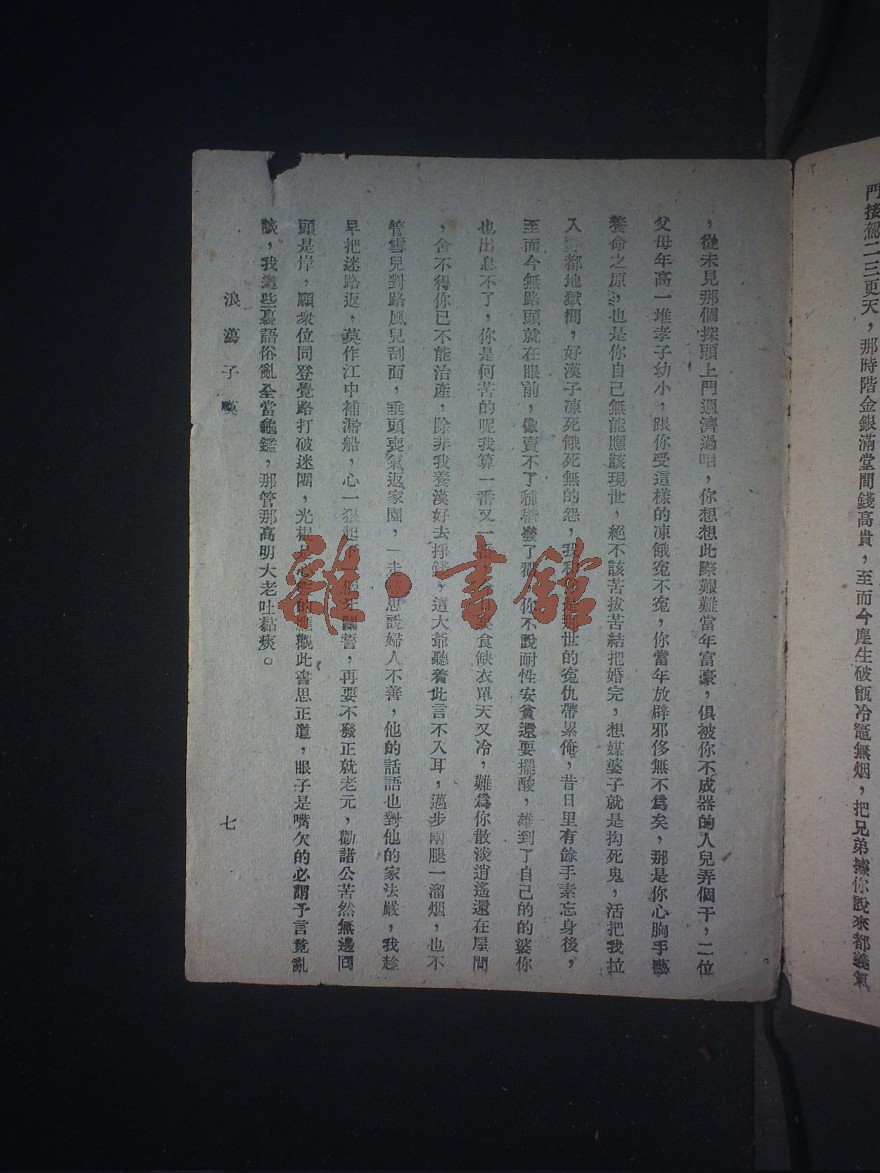 門接繳二三更天，那時階金銀滿堂間錢高貴，至而今塵生破甑冷竈無烟，把兄弟據你說來都義氣
，從未見那個探頭上門週濟過咱，你想想此際艱難當年富豪，俱被你不成器的人兒弄個干，二位
父母年高一堆孝子幼小，跟你受這樣的凍餓冤不冤，你當年放辟邪侈無不為矣，那是你心胸手藝
養命之原，也是你自己無能應該現世，絕不該苦拔苦結把婚完，想媒婆子就是拘死鬼，活把我拉
入都地獄間，好漢子凍死餓死無的怨，我世的冤仇帶累俺，昔日里有餘手素忘身後，
至而今無路頭就在眼前，像賣不了秫稭你不說耐性安貧還要擺酸，雄到了自己的的婆你
也出息不了，你是何苦的呢我算一番又一食缺衣單天又冷，難為你散淡逍遙還在屋間
，舍不得你已不能治產，除非我養漢好去掙錢，這大爺聽着此言不入耳，邁步兩腿一溜烟，也不
管雪兒對路風兒刮面，垂頭喪氣返家園，一走思說婦人不善，他的話語也對他的家法嚴，我趁
早把迷路返，莫作江中補漏船，心一狠起誓，再要不發正就老元，勸諸公苦然無邊回
頭是岸，願衆位同登覺路打破迷團，光棍觀此書思正道，眼子是嘴欠的必謂予言竟亂
談，我這些裏語俗亂全當龜鑑，那管那高明大老吐黏痰。
浪蕩子嘆
七
雜·書館